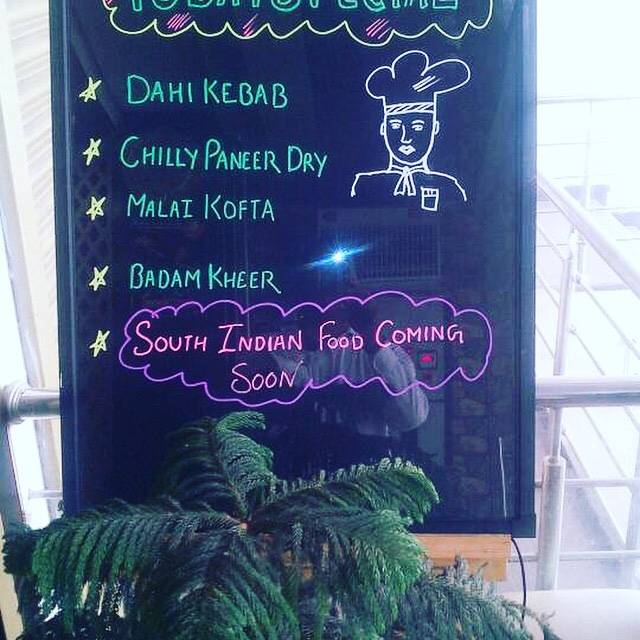 TODAY SPECIAL
DAHI KEBAB
CHILLY PANEER DRY
MALAI KOFTA
BADAM KHEER
SOUTH INDIAN FOOD COMING
SOON